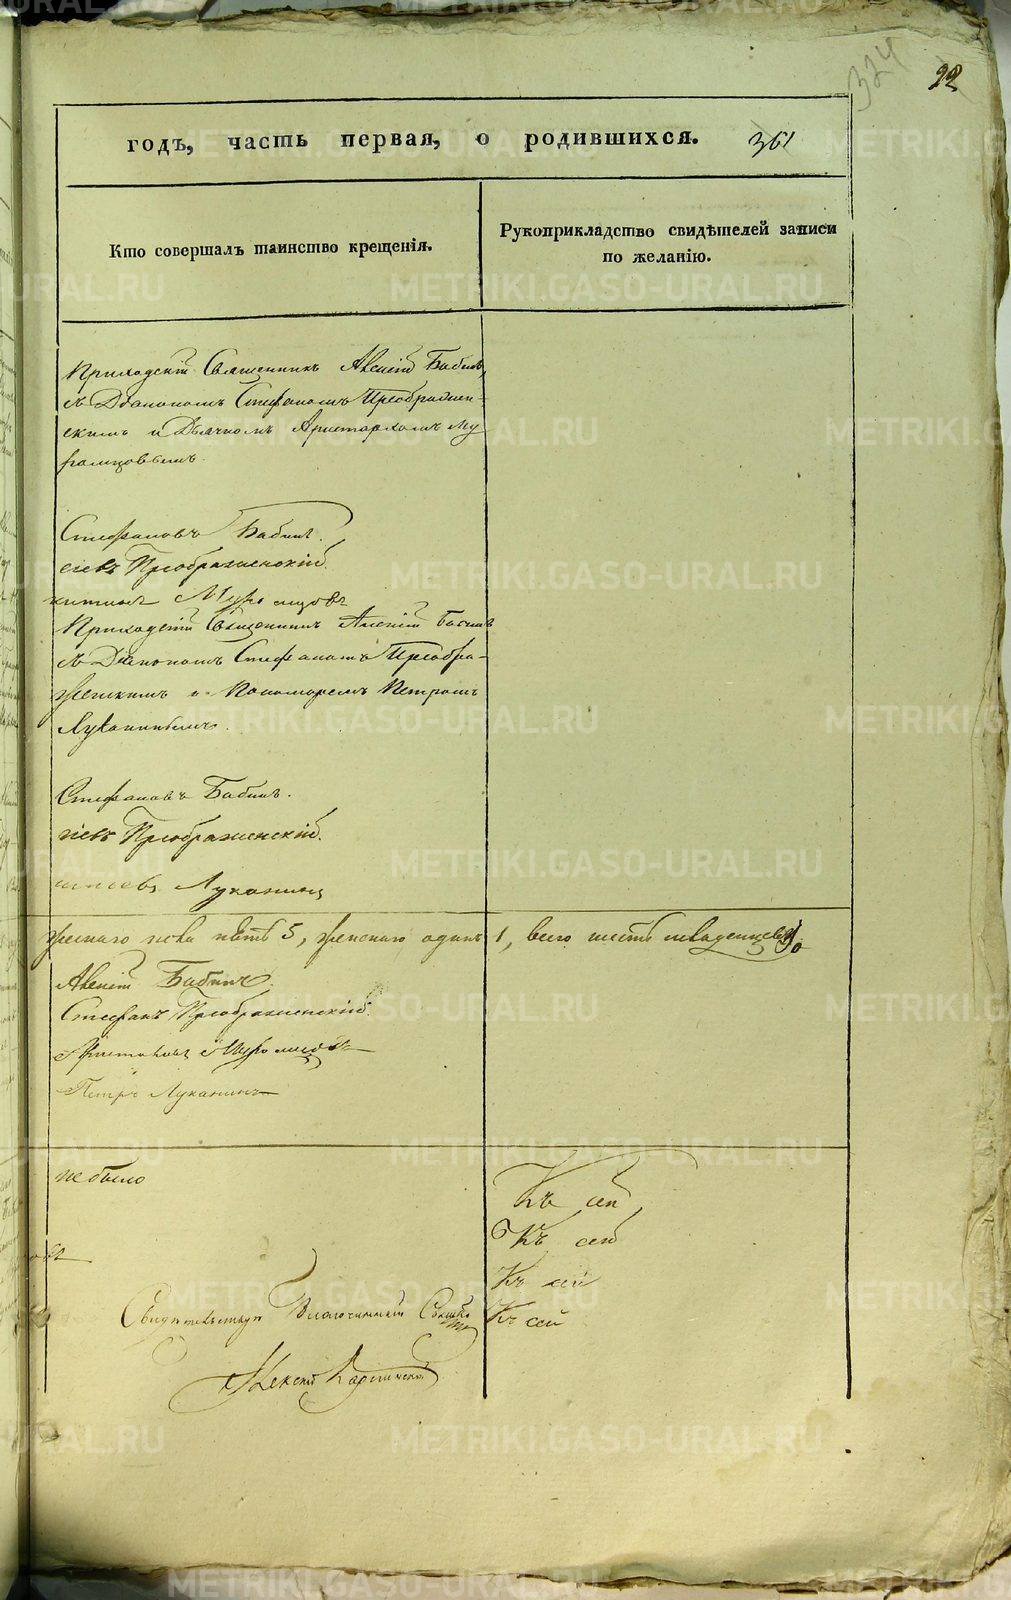 324
22
годъ, часть первая, о родившихся. 361
Кто совершалъ таинство крещенія.
Рукоприкладство свидѣтелей записи
по желанію.
Приходскій Священникъ Алексій Бабинъ,
съ Діакономъ Стефаномъ Преображен-
скимъ и Дьячкомъ Аристархомъ Му-
ромцовымъ.
Стефановъ Бабинъ.
Преображенскій.
Муромцовъ
Приходскій Священникъ Алексій Бабинъ
съ Діакономъ Стефаномъ Преобра-
женскимъ и Пономаремъ Петромъ
Луканинымъ.
Стефановъ Бабинъ.
Преображенскій.
Луканинъ
жескаго пола пять 5, женскаго одинъ 1, всего шесть младенцевъ
Алексій Бабинъ.
Стефанъ Преображенскій.
Аристархъ Муромцовъ
Петръ Луканинъ
не было
Къ сей
Къ сей
Къ сей
Къ сей
Благочинный
METRIKI.GASO-URAL.RU